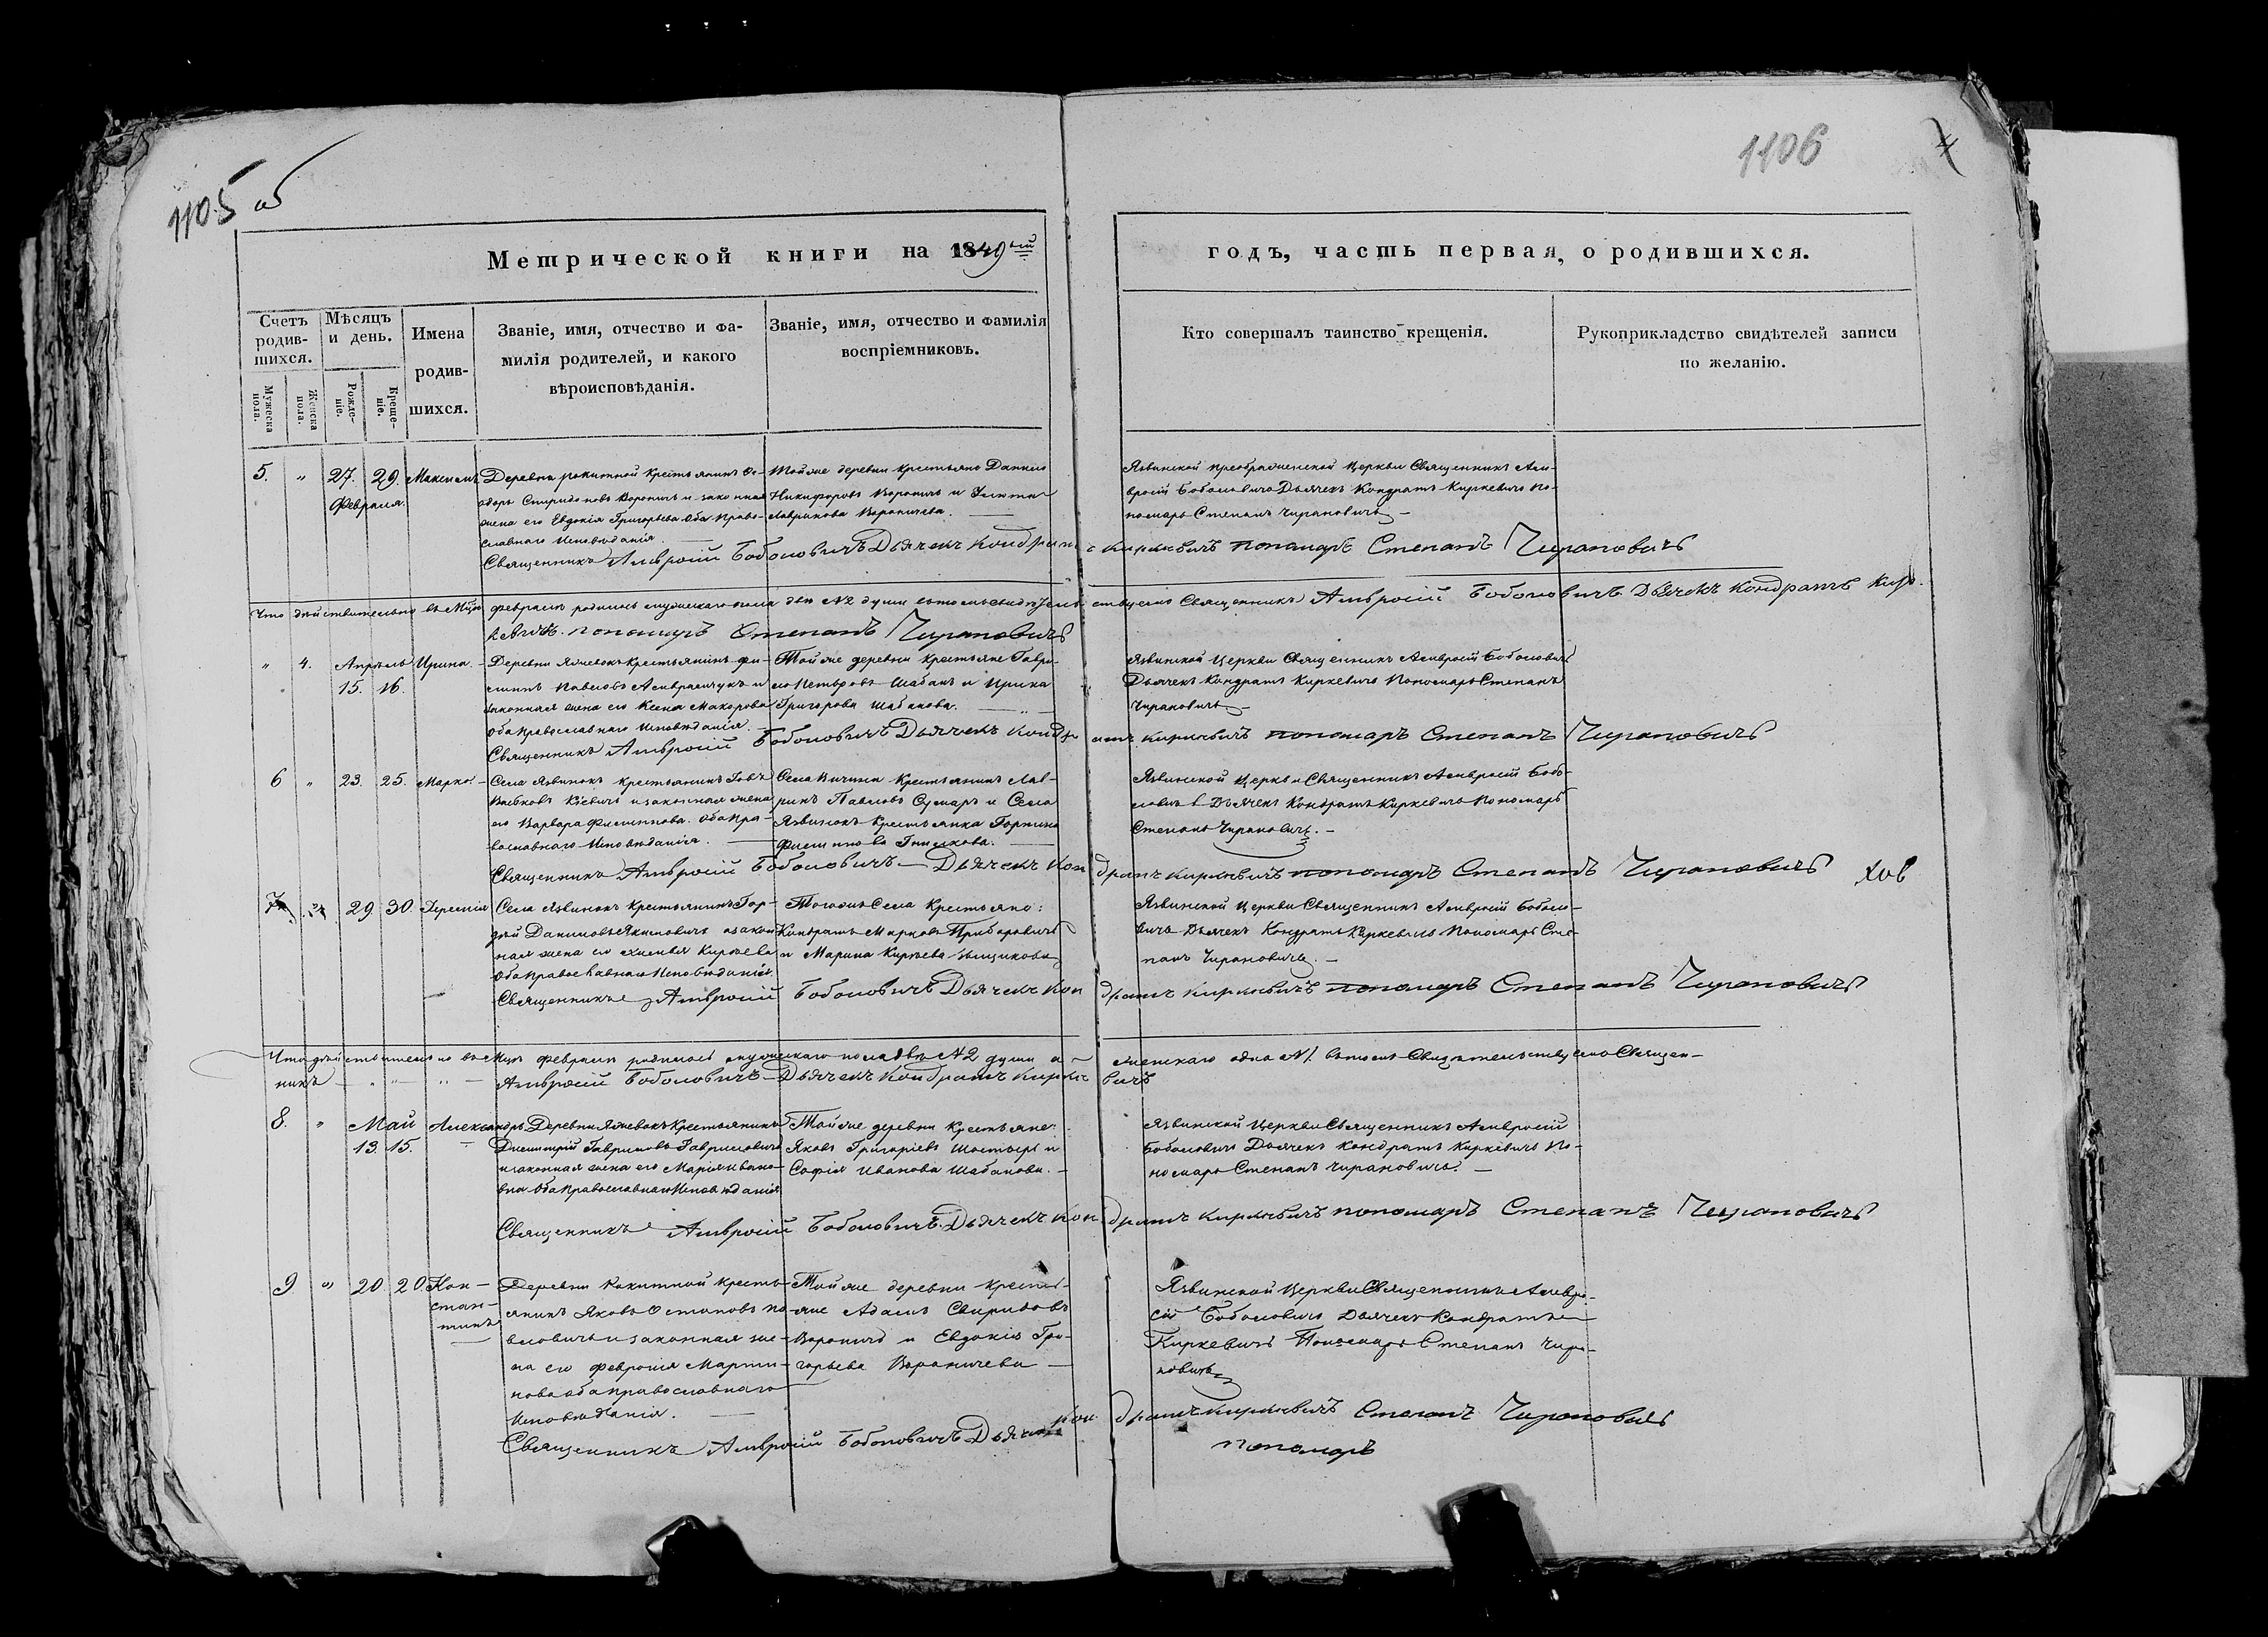 1105 об
1106
4
Метрической книги на 1849ый
годъ, часть первая, о родившихся.
Счетъ родившихся.
Мѣсяцъ и день.
Имена родившихся.
Званіе, имя, отчество и фамилія родителей, и какого вѣроисповѣданія.
Званіе, имя, отчество и фамилія воспріемниковъ.
Кто совершалъ таинство крещенія.
Рукоприкладство свидѣтелей записи по желанію.
Мужеска пола.
Женска пола.
Рожденіе.
Крещеніе.
5. " 27. 29. Максимъ
Февраля.
Деревни Рокитной Крестьянинъ Ѳе-
одоръ Спиридоновъ Вороничъ и законная
жена его Евдокія Григорьева Оба Право-
славнаго Исповѣданія.
Тойже деревни крестьяне Даніилъ
Никифоровъ Вороничъ и
Лаврикова Вороничева.
Язвинской преображенской Церкви Священникъ Ам-
вросій Боболовичъ Дьячекъ Кондратъ Киркевичъ По-
номарь Степанъ Чирановичъ
Священникъ Амвросій Боболовичъ Дьячекъ Кондратъ Киркевичъ пономарь Степанъ Чирановичъ
Что дѣйствительно въ Мцѣ февралѣ родилось мужескаго пола двѣ №2 души въ томъ свидѣтельствуемъ Священникъ Амвросій Боболовичъ Дьячекъ Кондратъ Кир-
кевичъ. пономарь Степанъ Чирановичъ
" 4. Апрѣль Ирина.
15. 16.
Деревни Яжевокъ Крестьянинъ Фи-
липъ Павловъ Амврасичукъ и
законная жена его Ксенія Макарова
Оба Православнаго Исповѣданія.
Тойже деревни Крестьяне Гаври-
ло Петровъ Шабанъ и Ирина
Григорова Шабанова.
Язвинской Церкви Священникъ Амвросій Боболовичъ
Дьячекъ Кондратъ Киркевичъ Пономарь Степанъ
Чирановичъ
Священникъ Амвросій Боболовичъ Дьячекъ Кондратъ Киркевичъ пономарь Степанъ Чирановичъ
6 " 23. 25. Марко.
Села Язвинокъ Крестьянинъ Іовъ
и законная жена
его Варвара Филиппова. Оба Пра-
вославнаго Исповѣданія.
Села Вичина Крестьянинъ Лав-
ринъ Павловъ и Села
Язвинокъ Крестьянка
Филиппова
Язвинской Церкви Священникъ Амвросій Бобо-
ловичъ Дьячекъ Кондратъ Киркевичъ Пономарь
Степанъ Чирановичъ.
Священникъ Амвросій Боболовичъ Дьячекъ Кондратъ Киркевичъ пономарь Степанъ Чирановичъ
7 29. 30.
Села Язвинокъ Крестьянинъ Гор-
дѣй Даниловъ Якимовичъ и закон-
ная жена его Кирѣева
Оба Православнаго Исповѣданія
Тогоже Села Крестьяне:
Кондратъ Марковъ Приборовичъ
и Марина Кирѣева
Язвинской Церкви Священникъ Амвросій Боболо-
вичъ Дьячекъ Кондратъ Киркевичъ Пономарь Сте-
панъ Чирановичъ.
Священникъ Амвросій Боболовичъ Дьячекъ Кондратъ Киркевичъ пономарь Степанъ Чирановичъ
Что дѣйствительно въ Мцѣ февралѣ родилось мужескаго пола двѣ №2 души а женскаго одна №1. въ томъ Свидѣтельствуемъ Священ-
никъ Амвросій Боболовичъ Дьячекъ Кондратъ Киркевичъ
8. " Май Александръ
13. 15.
Деревни Яжевокъ Крестьянинъ
Димитрій Гавриловъ Гавриловичъ
и законная жена его Марія Ивано-
вна Оба Православнаго Исповѣданія
Тойже деревни Крестьяне:
Яковъ Григоріевъ и
Софія Иванова Шабанова.
Язвинской Церкви Священникъ Амвросій
Боболовичъ Дьячекъ Кондратъ Киркевичъ По-
номарь Степанъ Чирановичъ.
Священникъ Амвросій Боболовичъ Дьячекъ Кондратъ Киркевичъ пономарь Степанъ Чирановичъ
9 " 20. 20. Кон-
стан-
тинъ
Деревни Рокитной Кресть-
янинъ Яковъ Остаповъ По-
вловичъ и законная же-
на его Февронія Марти-
нова оба православнаго
Исповѣданія.
Тойже деревни Кресть-
яне Адамъ Свиридовъ
Вороничъ и Евдокія Гри-
горьева Вороничева
Язвинской Церкви Священникъ Амвро-
сій Боболовичъ Дьячекъ Кондратъ
Киркевичъ Пономарь Степанъ Чира-
новичъ
Священникъ Амвросій Боболовичъ Дьячекъ Кондратъ Киркевичъ Степанъ Чирановичъ
пономарь